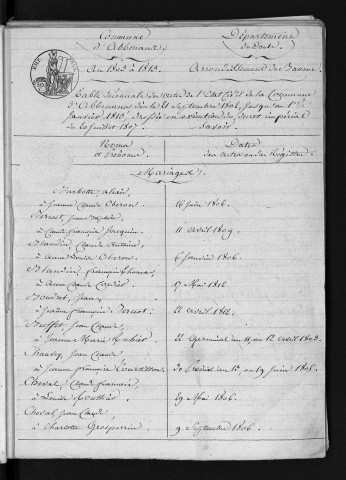 Commune
d'Abbenans
Département
du Doubs
An 1803 à 1813.
Arrondissement de Baume
Table décennale des actes de l'Etat Civil de la Commune
d'Abbenans depuis le 21 Septembre 1802, jusqu'au 1er
janvier 1813, dressée en exécution du décret impérial
du 20 juillet 1807.
Savoir
Noms
et prénoms
Dates
des actes ou des Registres
Mariages.
à Jeanne Claude Oberon
16 juin 1806.
Bercot,
à Claude françoise
11 avril 1809
Blandin Claude Antoine
à Oberon
6 janvier 1806.
Blandin françois
à Anne Claude
17 Mai 1812
Jean
à jeanne françoise Bercot
21 avril 1812.
Jean Claude
à Jeanne Marie
22 Germinal an 11, ou 12 avril 1803.
Jean Claude
à jeanne françoise
30 Prairial an 13, ou 19 juin 1805.
Cheval, Claude françois
à Louise
29 Mai 1806.
Cheval, Jean Claude
à Charlotte Grosperrin
9 Septembre 1806.